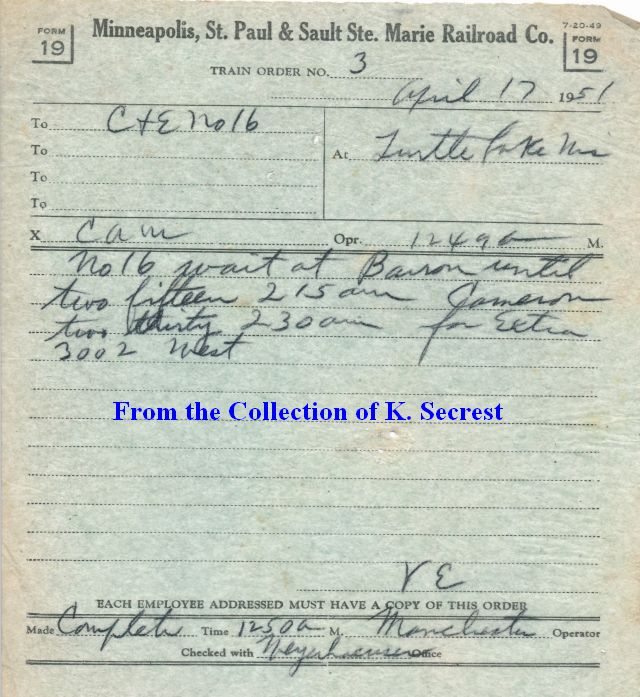 FORM 19
Minneapolis, St. Paul & Sault Ste. Marie Railroad Co.
7-20-49
FORM 19
TRAIN ORDER NO. 3
April 17 1951
To C+E No 16
To
To
To
At Turtle Lake Wis
X C a m Opr. 1249a M.
No 16 wait at Barron until
two fifteen 215am Cameron
two thirty 230am for Extra
3002 West
From the Collection of K. Secrest
V E
EACH EMPLOYEE ADDRESSED MUST HAVE A COPY OF THIS ORDER
Made Complete Time 1250a M. Manchester Operator
Checked with Office